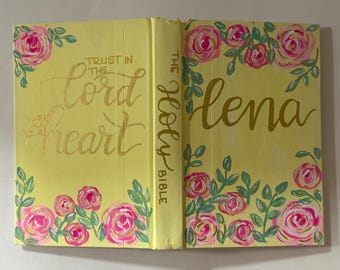 TRUST IN
THE
Lord
WITH
ALL
YOUR
heart
THE Holy BIBLE
lena